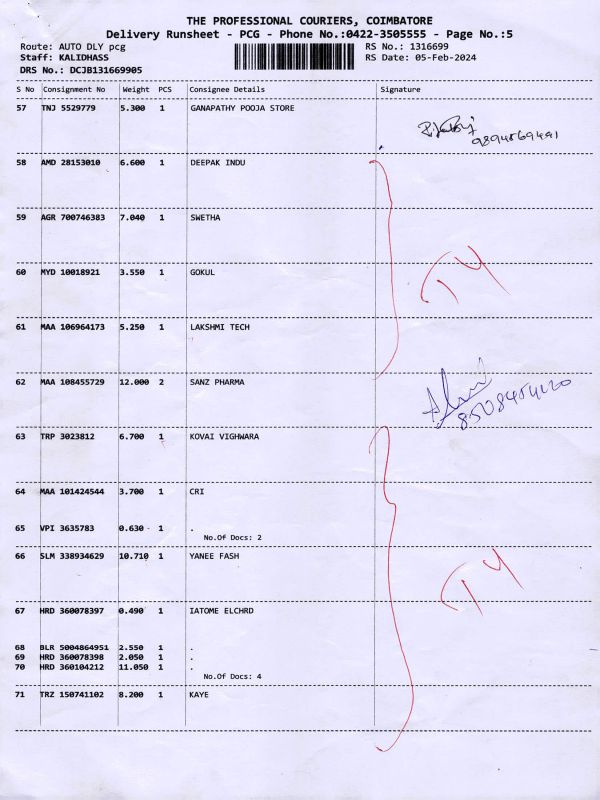 THE PROFESSIONAL COURIERS, COIMBATORE
Delivery Runsheet - PCG - Phone No.:0422-3505555 - Page No.:5
Route: AUTO DLY pcg RS No.: 1316699
Staff: KALIDHASS RS Date: 05-Feb-2024
DRS No.: DCJB131669905
S No Consignment No Weight PCS Consignee Details Signature
57 TNJ 5529779 5.300 1 GANAPATHY POOJA STORE
9894569491
58 AMD 28153010 6.600 1 DEEPAK INDU
59 AGR 700746383 7.040 1 SWETHA
60 MYD 10018921 3.550 1 GOKUL
TY
61 MAA 106964173 5.250 1 LAKSHMI TECH
62 MAA 108455729 12.000 2 SANZ PHARMA
63 TRP 3023812 6.700 1 KOVAI VIGHWARA
64 MAA 101424544 3.700 1 CRI
65 VPI 3635783 0.630 1 .
No.Of Docs: 2
66 SLM 338934629 10.710 1 YANEE FASH
TY
67 HRD 360078397 0.490 1 IATOME ELCHRD
68 BLR 5004864951 2.550 1 .
69 HRD 360078398 2.050 1 .
70 HRD 360104212 11.050 1 .
No.Of Docs: 4
71 TRZ 150741102 8.200 1 KAYE